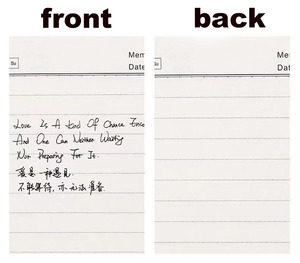 front
back
Su
Mem
Date
Love Is A Kind Of Chance Enco
And One Can Neither Waiting
Nor Preparing For It.
爱是一种遇见.
不能等待，亦无法准备.
Su
Mem
Date